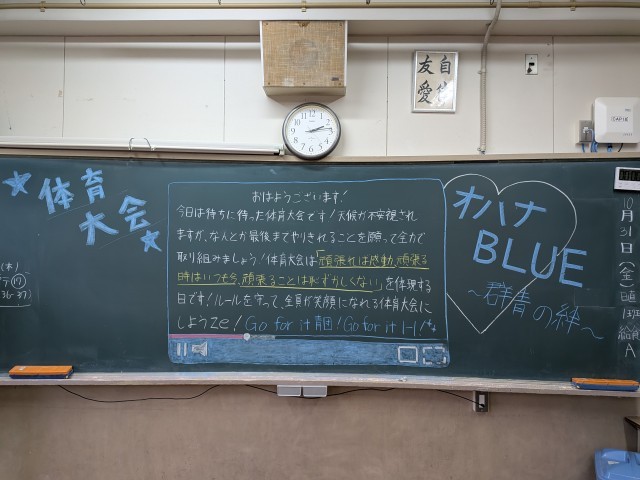 自律
友愛
体育
大会
おはようございます！
今日は待ちに待った体育大会です！天候が不安視され
ますが、なんとか最後までやりきれることを願って全力で
取り組みましょう！体育大会は「頑張れば感動、頑張る
時はいつも今、頑張ることは恥ずかしくない」を体現する
日です！ルールを守って、全員が笑顔になれる体育大会に
しようze！Go for it 青団！Go for it 1-1！
オハナ
BLUE
～群青の絆～
10月31日(金)
日直
給食A
(木)